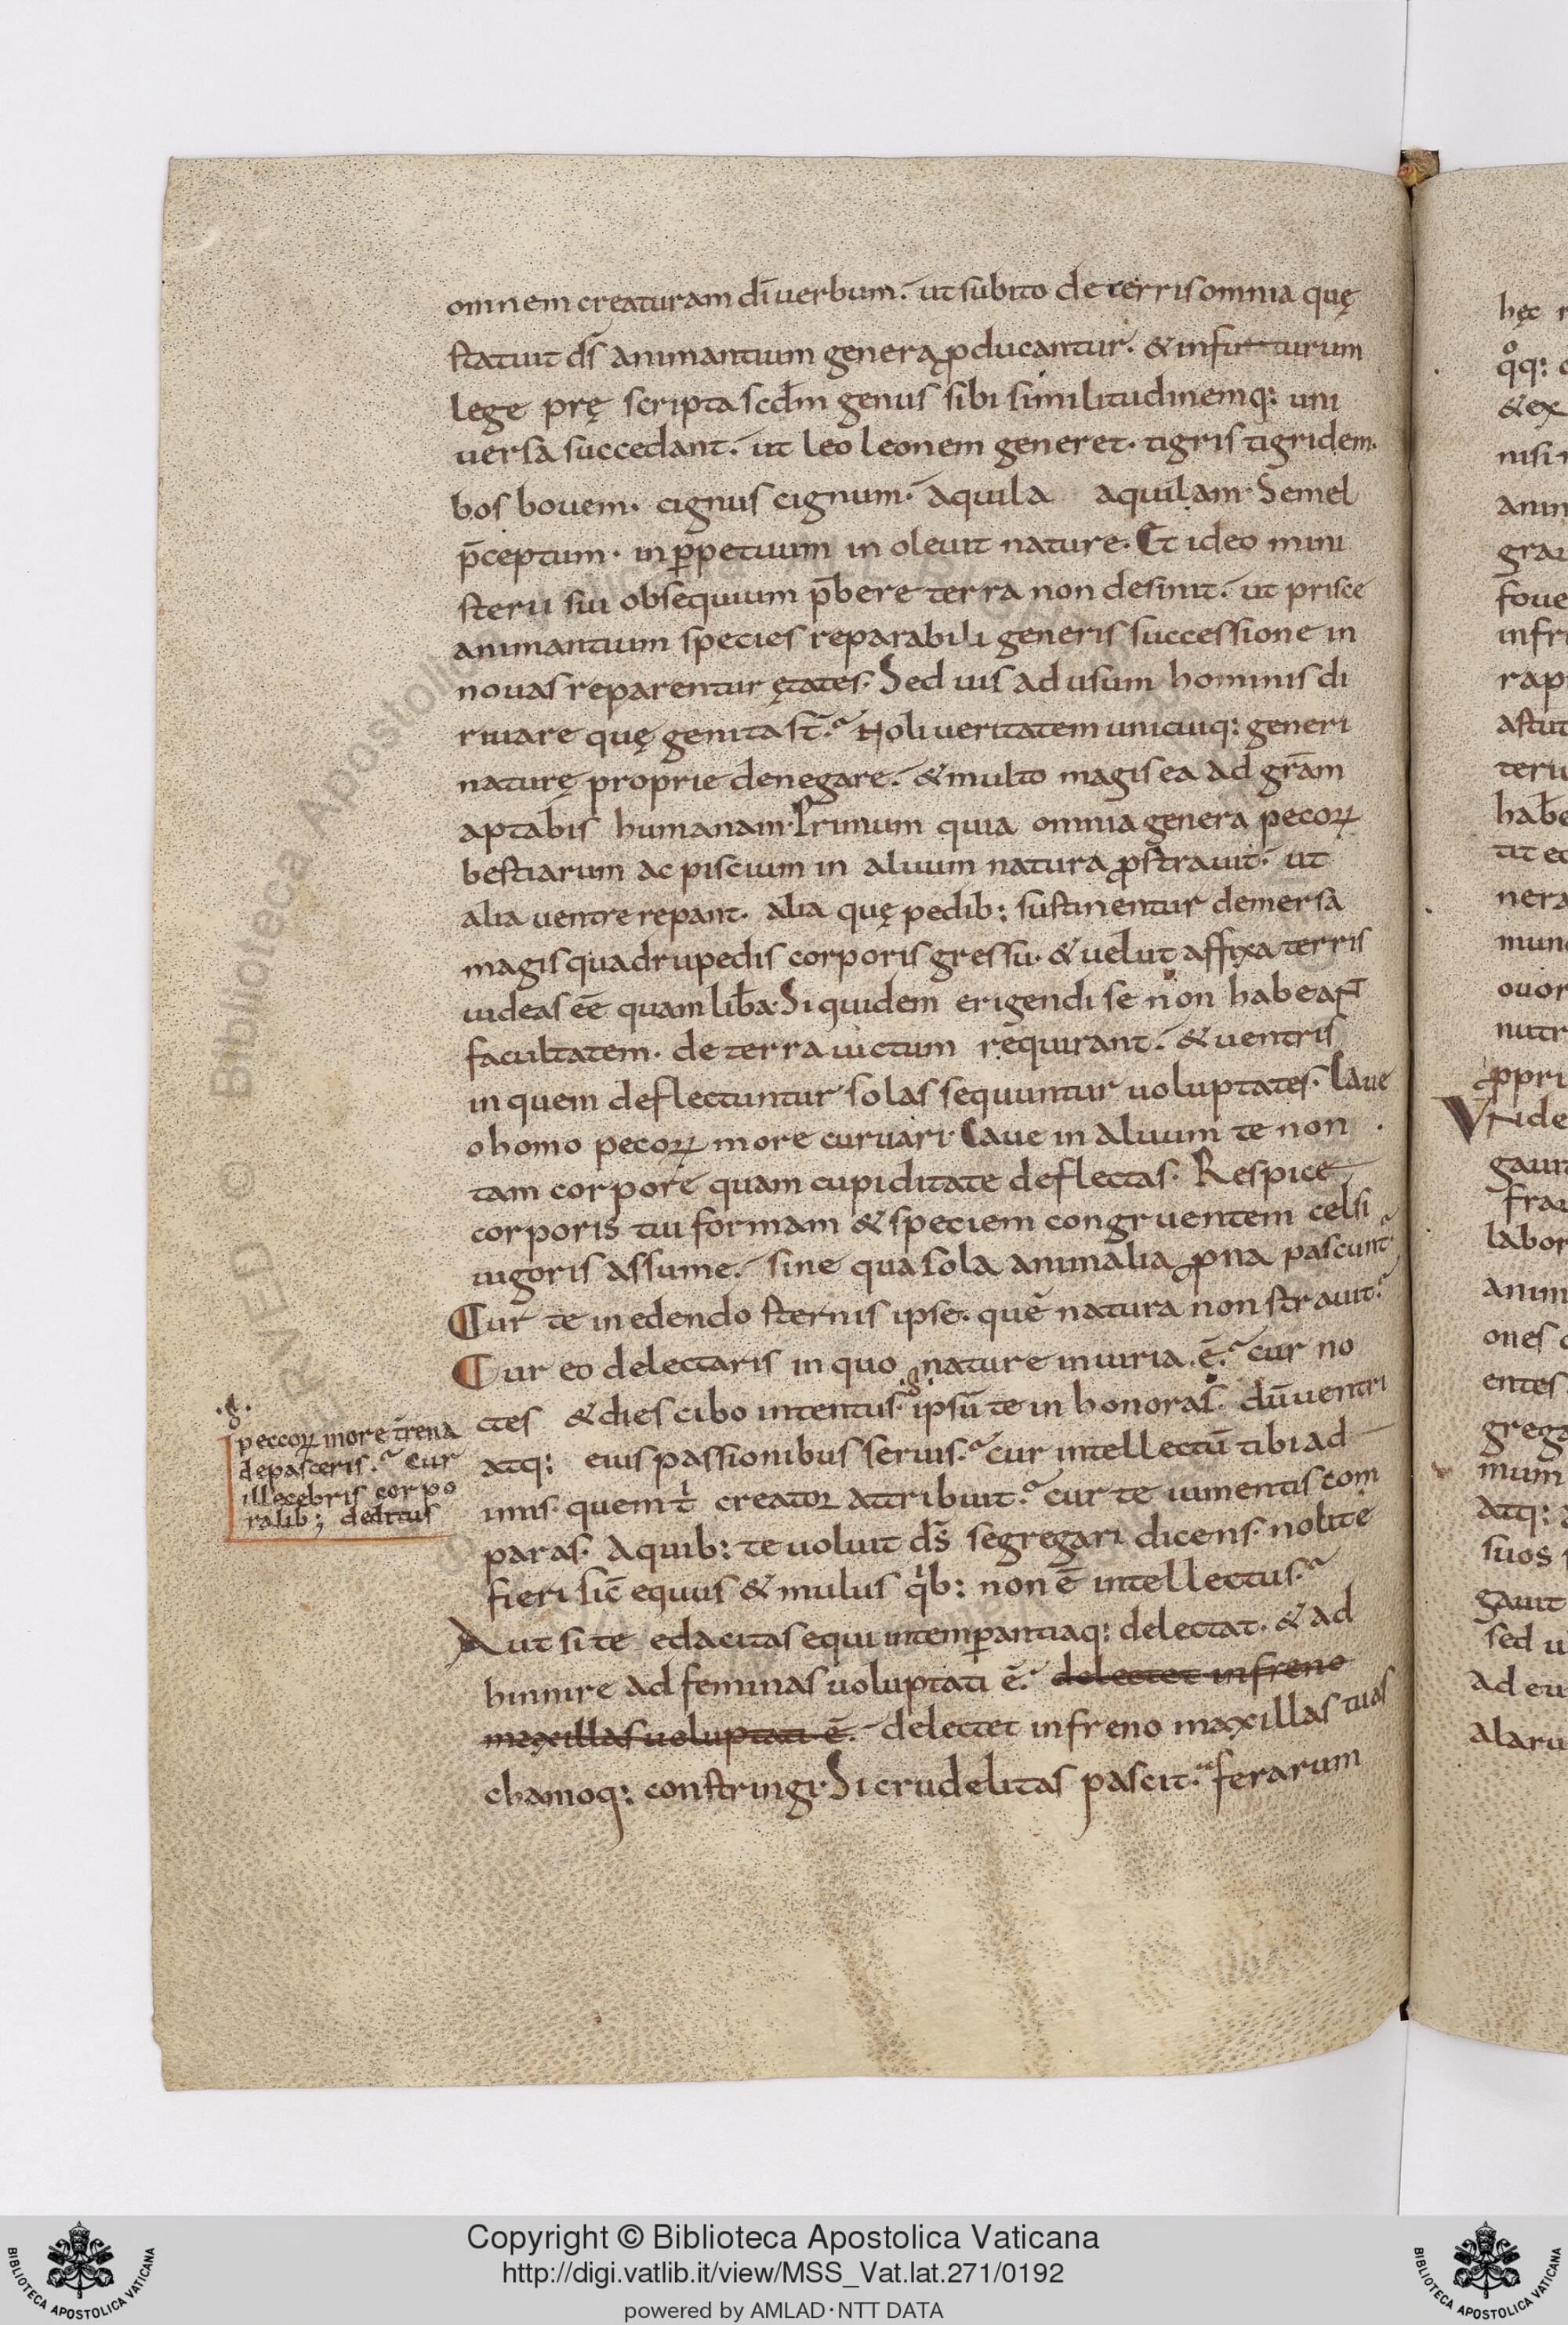 omnem creaturam dī uerbum. ut subito de terris omnia quę
statuit ds̄ animantium genera ꝓducantur. & in futurum
lege prę scripta scdm̄ genus sibi similitudinemq: uni
uersa succedant. ut leo leonem generet. tigris tigridem.
bos bouem. cignus cignum. aquila aquilam. Semel
p̄ceptum. in ꝑpetuum in oleuit nature. Et ideo mini
sterii sui obsequium p̄bere terra non desinit. ut prisce
animantium species reparabili generis successione in
nouas reparentur ętates. Sed uis ad usum hominis di
riuare quę genita st̄? Noli ueritatem unicuiq: generi
naturę proprie denegare. & multo magis ea ad grām
aptabis humanam. Primum quia omnia genera pecoꝝ
bestiarum ac piscium in aluum natura ꝓstrauit. ut
alia uentre repant. alia quę pedib: sustinentur demersa
magis quadrupedis corporis gressu. & uelut affixa terris
uideas eē quam lib̄a. Si quidem erigendi se non habeant
facultatem. de terra uictum requirant. & uentris
in quem deflectuntur solas sequuntur uoluptates. Caue
o homo pecoꝝ more curuari. Caue in aluum te non
tam corpore quam cupiditate deflectas. Respice
corporis tui formam & speciem congruentem celsi
uigoris assume. sine qua sola animalia ꝓna pascunt᷑
Cur te in edendo sternis ipse. quē natura non strauit?
Cur eo delectaris in quo nature iniuria ē? cur no
ctes & dies cibo intentus. ipsū te in honoras. dū uentri
peccoꝝ more t̄rena
depasceris? Cur
illecebris corpo
ralib; deditus
atq: eius passionibus seruis? cur intellectū tibi ad
imis. quem t̓ creator attribuit? cur te iumentis com
paras. A quib: te uoluit ds̄ segregari dicens. nolite
fieri sic̄ equus & mulus q̓b: non ē intellectus?
Aut si te edacitas equi intemꝑantiaq: delectat. & ad
hinnire ad feminas uoluptati ē. delectet in freno
maxillas uoluptati ē. delectet in freno maxillas tuas
chamoq: constringi. Si crudelitas pascit. ferarum
Copyright © Biblioteca Apostolica Vaticana
http://digi.vatlib.it/view/MSS_Vat.lat.271/0192
powered by AMLAD·NTT DATA